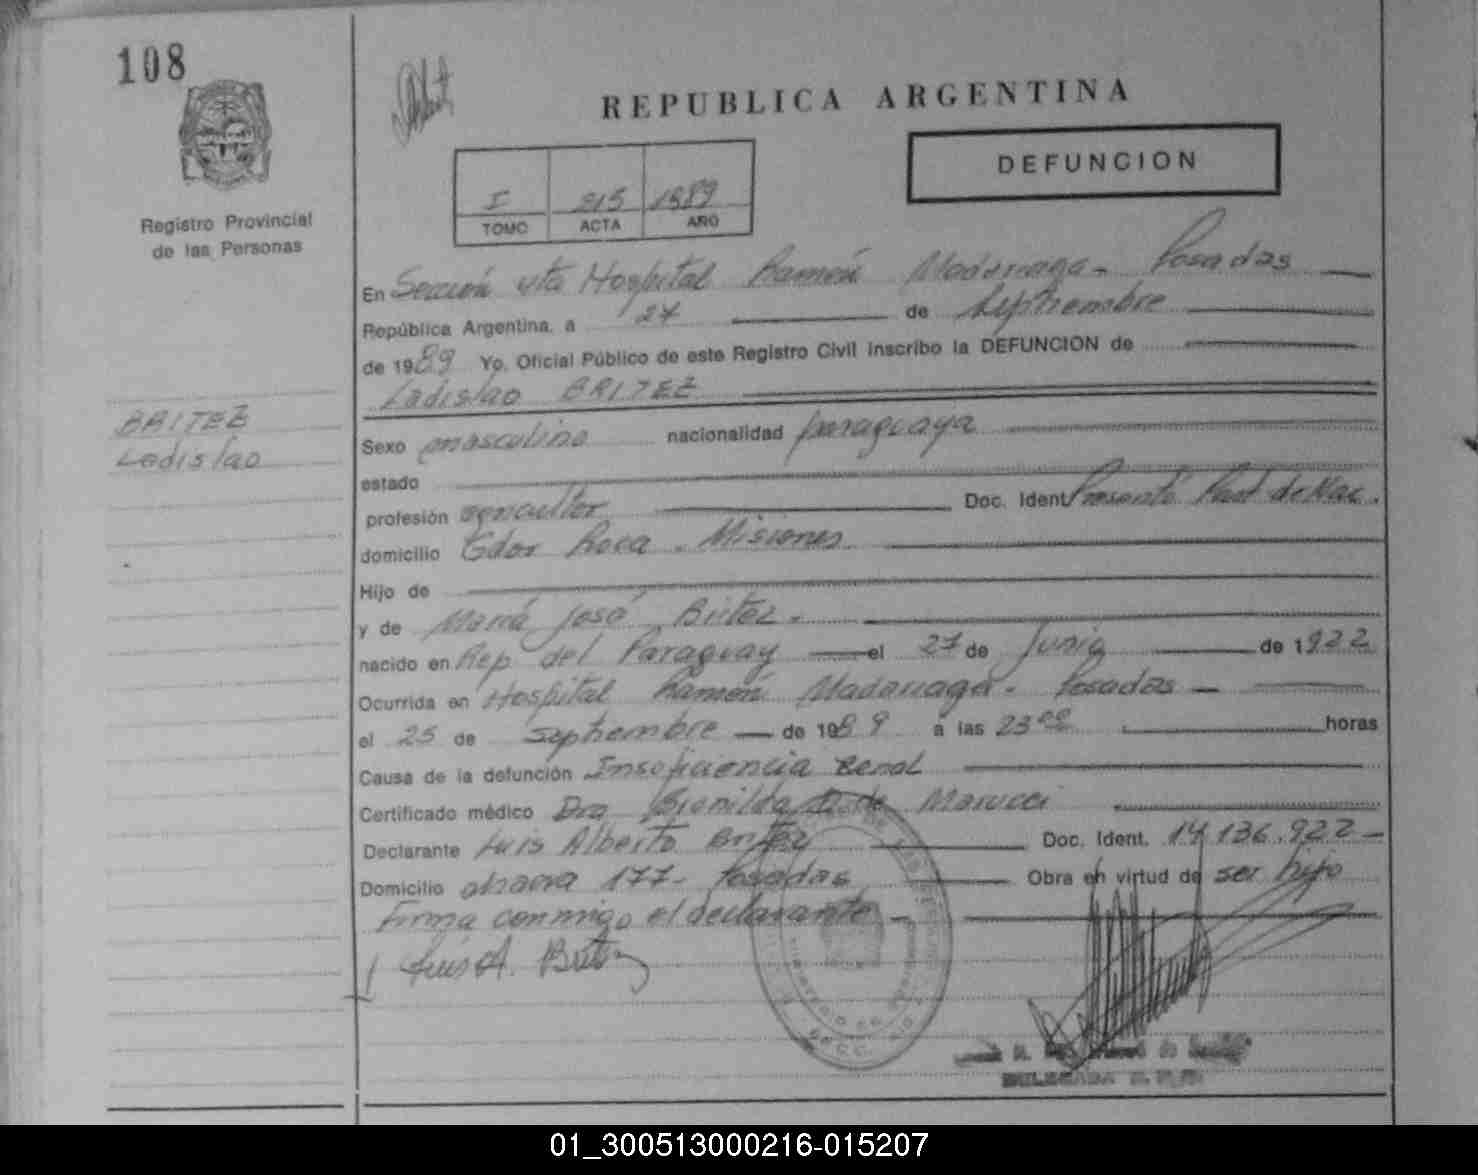 108
REPUBLICA ARGENTINA
DEFUNCION
I 315 1989
TOMO ACTA AÑO
Registro Provincial
de las Personas
En Sección 4ta Hospital Ramón Madariaga - Posadas
República Argentina, a 27 de Septiembre
de 1989 Yo, Oficial Público de este Registro Civil inscribo la DEFUNCION de
Ladislao BRITEZ
BRITEZ
Ladislao
Sexo masculino nacionalidad paraguaya
estado
profesión agricultor Doc. Ident. Presentó Part de Nac.
domicilio Gdor Roca - Misiones
Hijo de
y de María José Britez.
nacido en Rep. del Paraguay el 27 de Junio de 1922
Ocurrida en Hospital Ramón Madariaga - Posadas
el 25 de Septiembre de 1989 a las 23 00 horas
Causa de la defunción Insuficiencia Renal
Certificado médico Dra de Marucci
Declarante Luis Alberto Britez Doc. Ident. 14.136.922
Domicilio 177 - Posadas Obra en virtud de ser hijo
Firma conmigo el declarante
Luis A. Britez
01_300513000216-015207